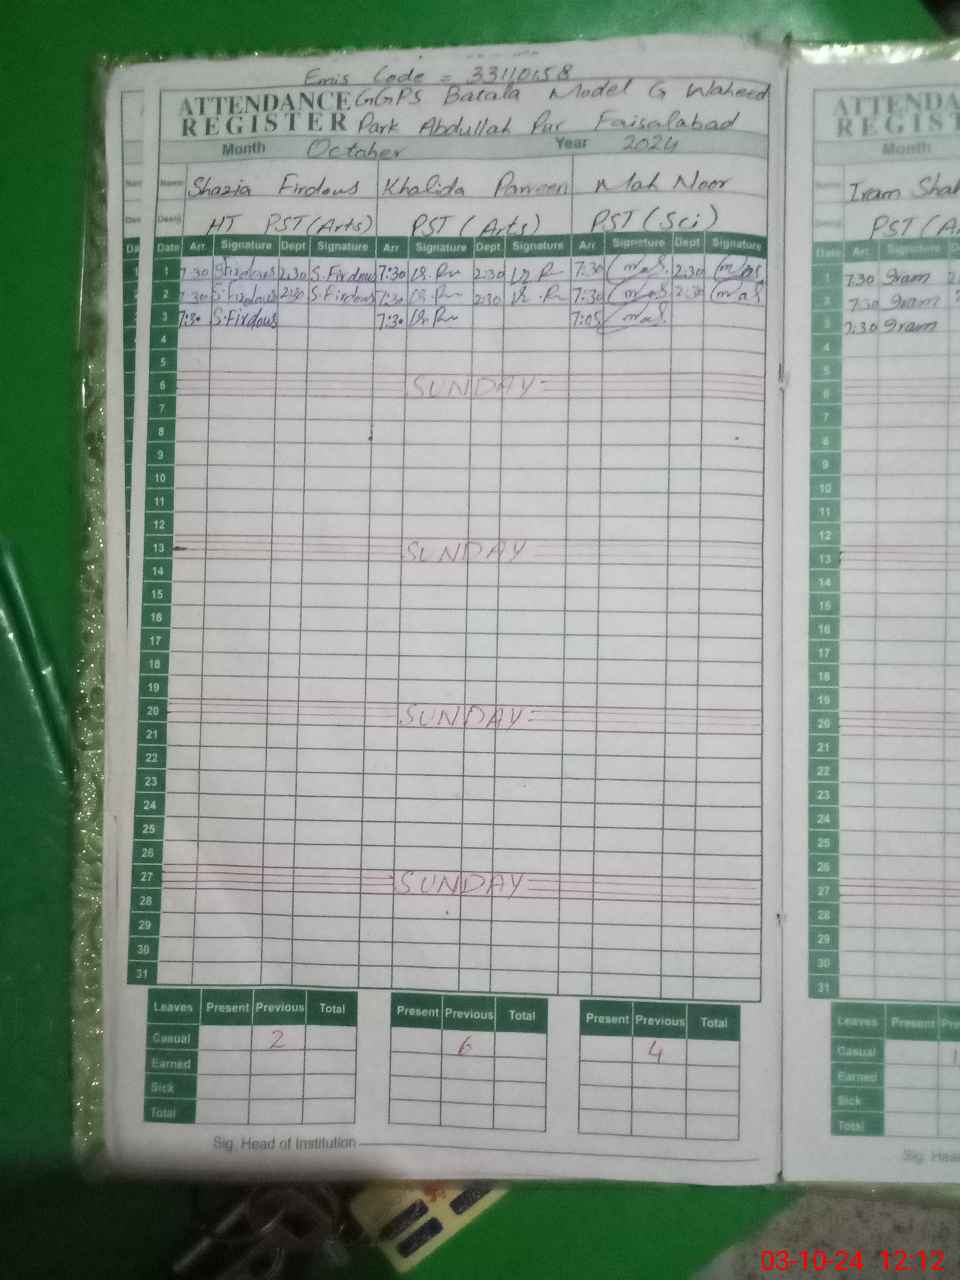 Emis Code = 33110158
ATTENDANCE GGPS Batala Model G Waheed
REGISTER Park Abdullah Pur Faisalabad
Month October Year 2024
Name Shazia Firdous Khalida Parveen Mah Noor
Desig HT PST(Arts) PST (Arts) PST (Sci)
Date Arr. Signature Dept Signature Arr Signature Dept Signature Arr Signature Dept Signature
1 7:30 S.Firdous 2:30 S.Firdous 7:30 2:30 7:30 2:30
2 7:30 S.Firdous 2:30 S.Firdous 7:30 2:30 7:30 2:30
3 7:30 S.Firdous 7:30 7:05
4
5
6 SUNDAY
7
8
9
10
11
12
13 SUNDAY
14
15
16
17
18
19
20 SUNDAY
21
22
23
24
25
26
27 SUNDAY
28
29
30
31
Leaves Present Previous Total Present Previous Total Present Previous Total
Casual 2 6 4
Earned
Sick
Total
Sig. Head of Institution
ATTENDA
REGIST
Month
Iram Shah
PST(A
Date Arr. Signature
1 7:30 Iram
2 7:30 Iram
3 7:30 Iram
4
5
6
7
8
9
10
11
12
13
14
15
16
17
18
19
20
21
22
23
24
25
26
27
28
29
30
31
Leaves Present Pre
Casual 1
Earned
Sick
Total
Sig. Hea
03-10-24 12:12